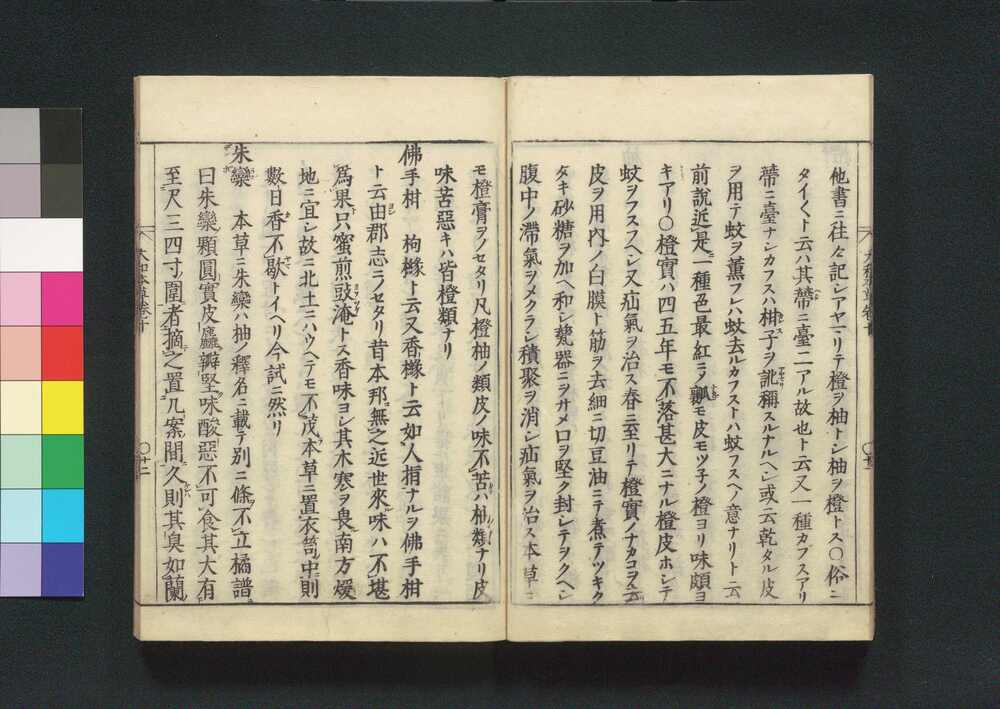 他書ニ往々記シアヤマリテ橙ヲ柚トシ柚ヲ橙トス〇俗ニ
タイ〱ト云ハ其蔕ニ臺二アル故也ト云又一種カブスアリ
蔕ニ臺ナシカフスハ柑子ヲ訛稱スルナルヘシ或云乾タル皮
ヲ用テ蚊ヲ薫フレハ蚊去ルカフストハ蚊フスヘノ意ナリト云
前說近是一種色最紅ニノ瓤モ皮モツ子ノ橙ヨリ味頗ヨ
キアリ〇橙實ハ四五年モ不落甚大ニナル橙皮ホシテ
蚊ヲフスフヘシ又疝氣ヲ治ス春ニ至リテ橙實ノナカコヲ去
皮ヲ用內ノ白膜ト筋ヲ去細ニ切豆油ニテ煮テツキタ
タキ砂糖ヲ加ヘ和シ甆器ニヲサメ口ヲ堅ク封シテヲクヘシ
腹中ノ滯氣ヲメクラシ積聚ヲ消シ疝氣ヲ治ス本草ニ
モ橙膏ヲノセタリ凡橙柚ノ類皮ノ味不苦ハ柚類ナリ皮
味苦惡キハ皆橙類ナリ
佛手柑 枸櫞ト云又香櫞ト云如人指ナルヲ佛手柑
ト云由郡志ラセタリ昔本邦無之近世來味ハ不堪
爲果只蜜煎豉淹トス香味ヨシ其木寒ヲ畏南方煖
地ニ宜シ故ニ北土ニハウヘテモ不茂本草ニ置衣笥中則
數日香不歇トイヘリ今試ニ然リ
朱欒 本草ニ朱欒ハ柚ノ釋名ニ載テ別ニ條不立橘譜
曰朱欒顆圓實皮麤瓣堅味酸惡不可食其大有
至尺三四寸圍者摘之置几案間久則其臭如蘭
大和本草卷十
〇廿二